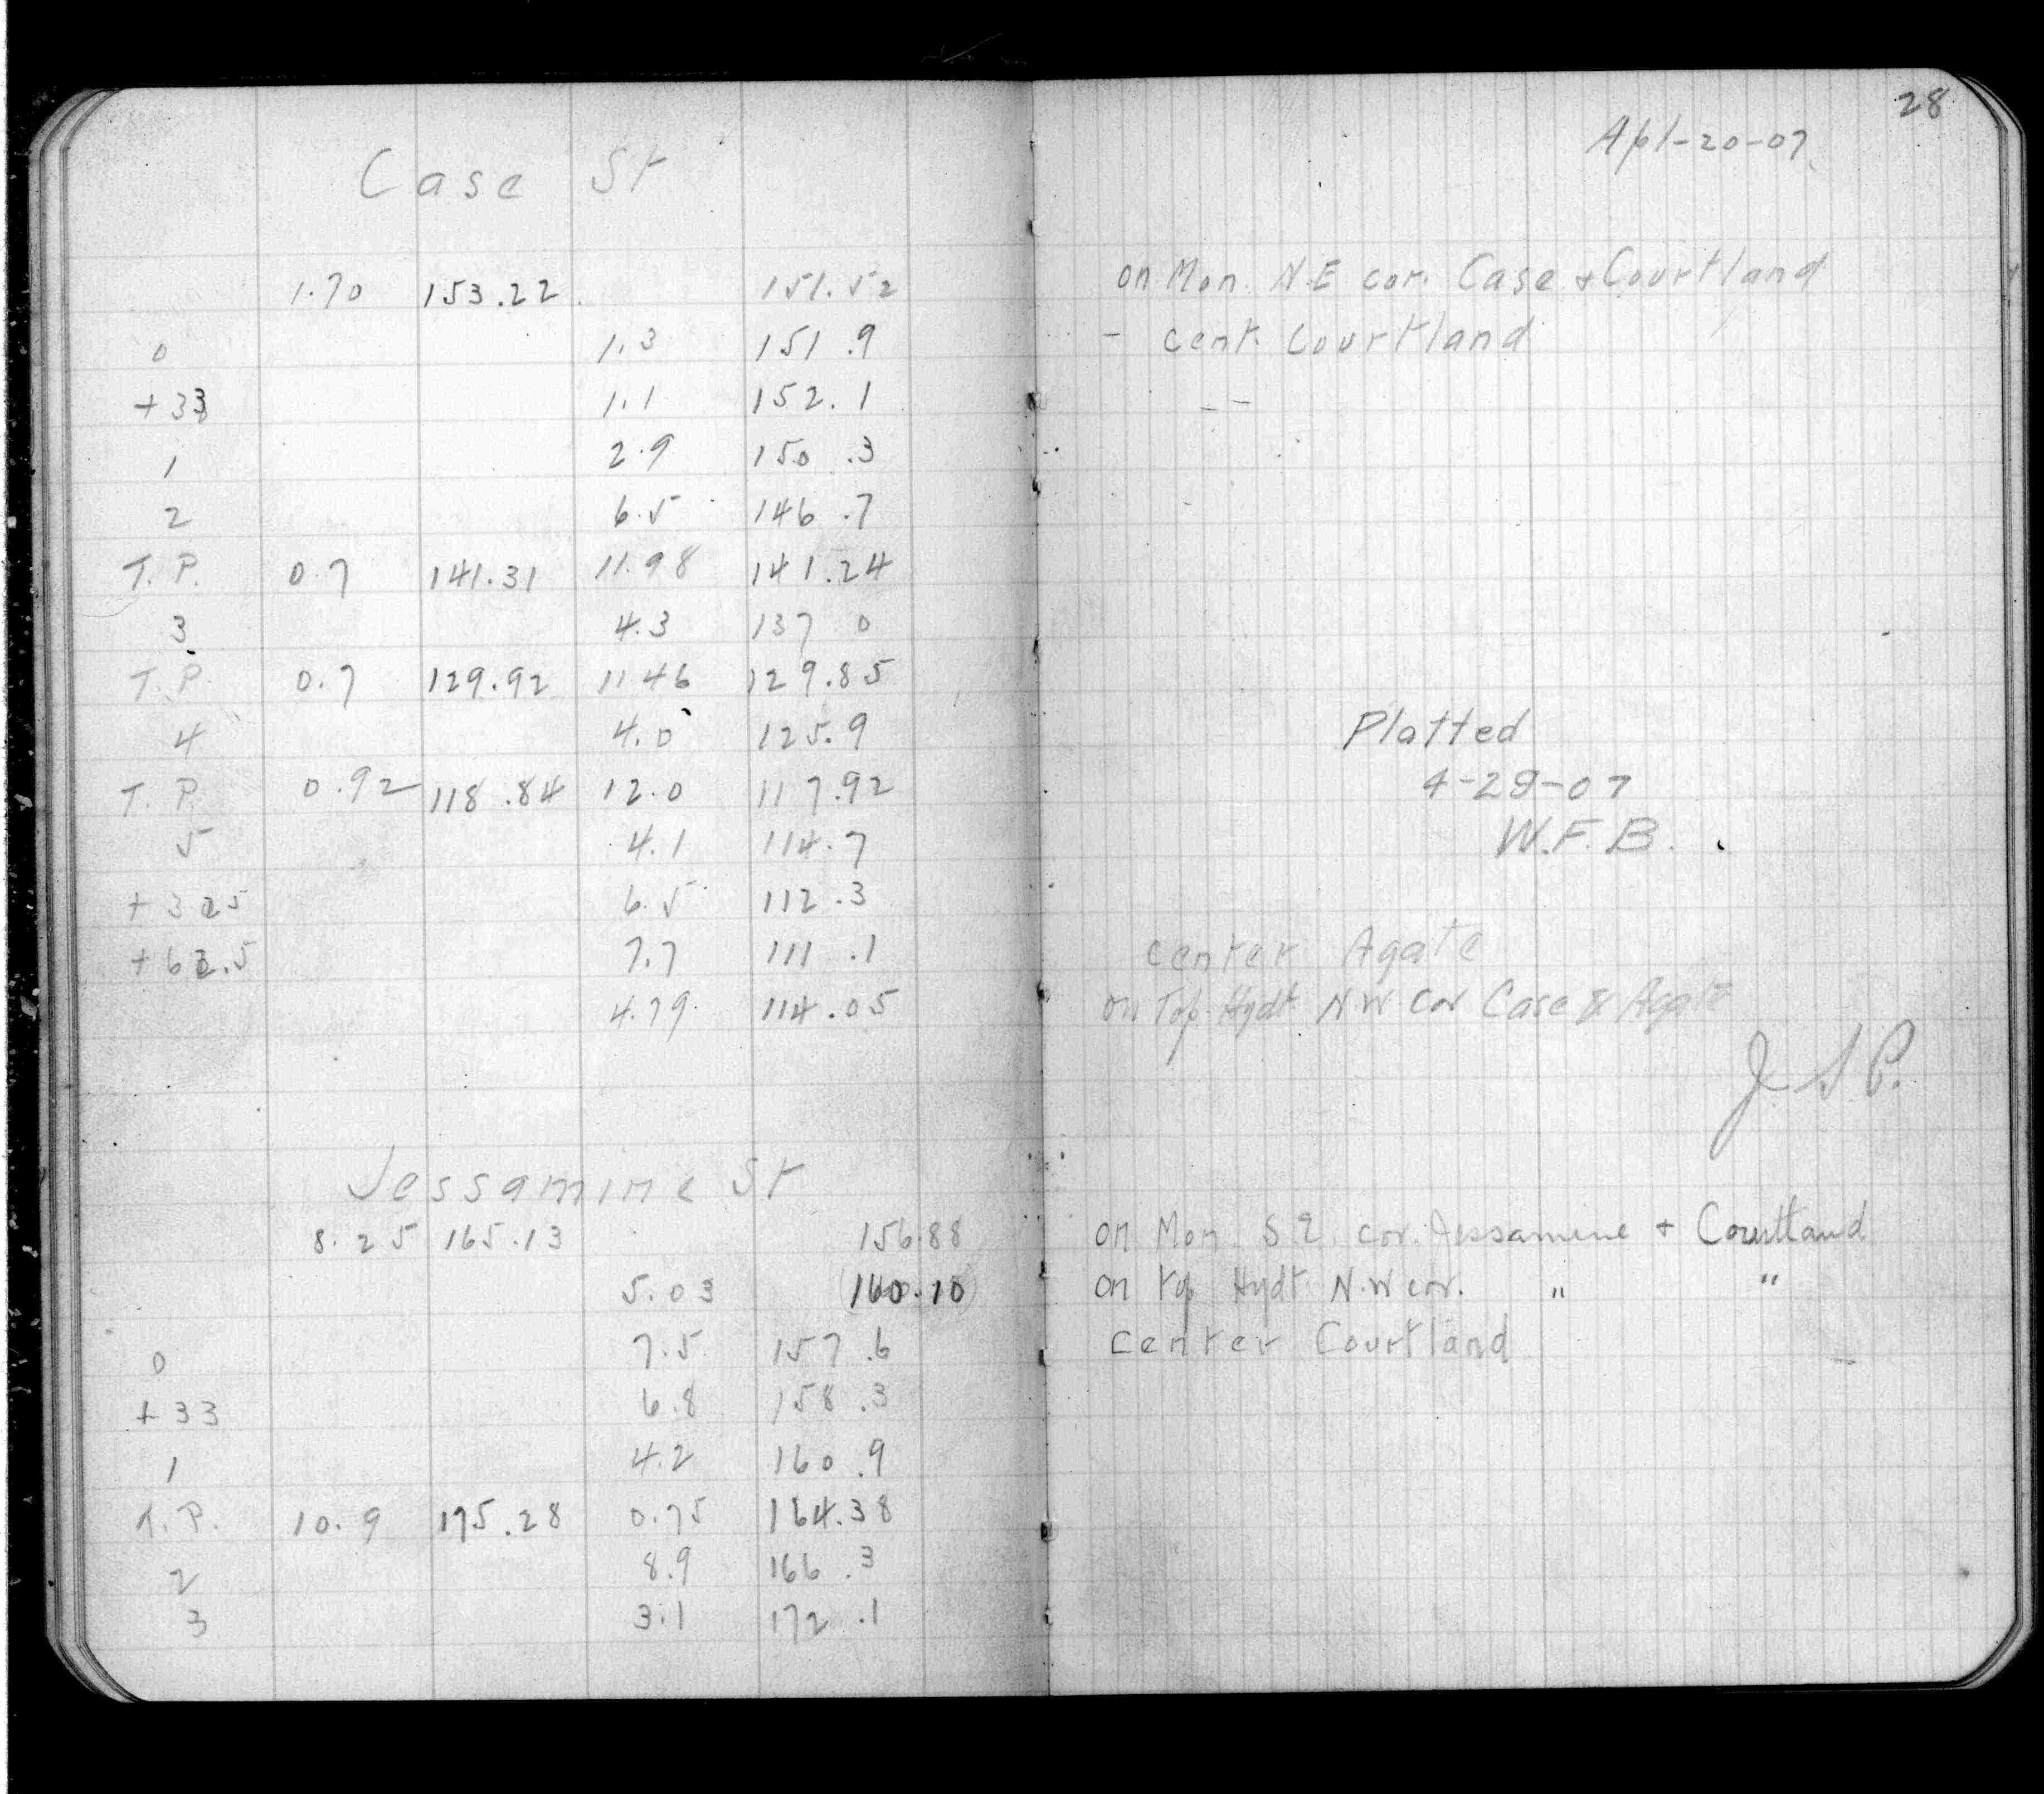 28
Apl-20-07
Case St
1.70 153.22 151.52 on Mon. N.E cor. Case + Courtland
0 1.3 151.9 - cent. Courtland
+33 1.1 152.1 - -
1 2.9 150.3
2 6.5 146.7
T.P. 0.7 141.31 11.98 141.24
3 4.3 137 0
T.P. 0.7 129.92 11 46 129.85
4 4.0 125.9 Platted
T.P. 0.92 118.84 12.0 117.92 4-29-07
5 4.1 114.7 W.F.B.
+ 32.5 6.5 112.3
+ 62.5 7.7 111.1 center Agate
4.79 114.05 on Top Hydt N W cor Case & Agate
J S P.
Jessamine St
8.25 165.13 156.88 on Mon. S.E. cor. Jessamine + Courtland
5.03 (160.10) on top Hydt N.W cor. " "
0 7.5 157.6 center Courtland -
+ 33 6.8 158.3
1 4.2 160.9
T.P. 10.9 175.28 0.75 164.38
2 8.9 166.3
3 3.1 172.1